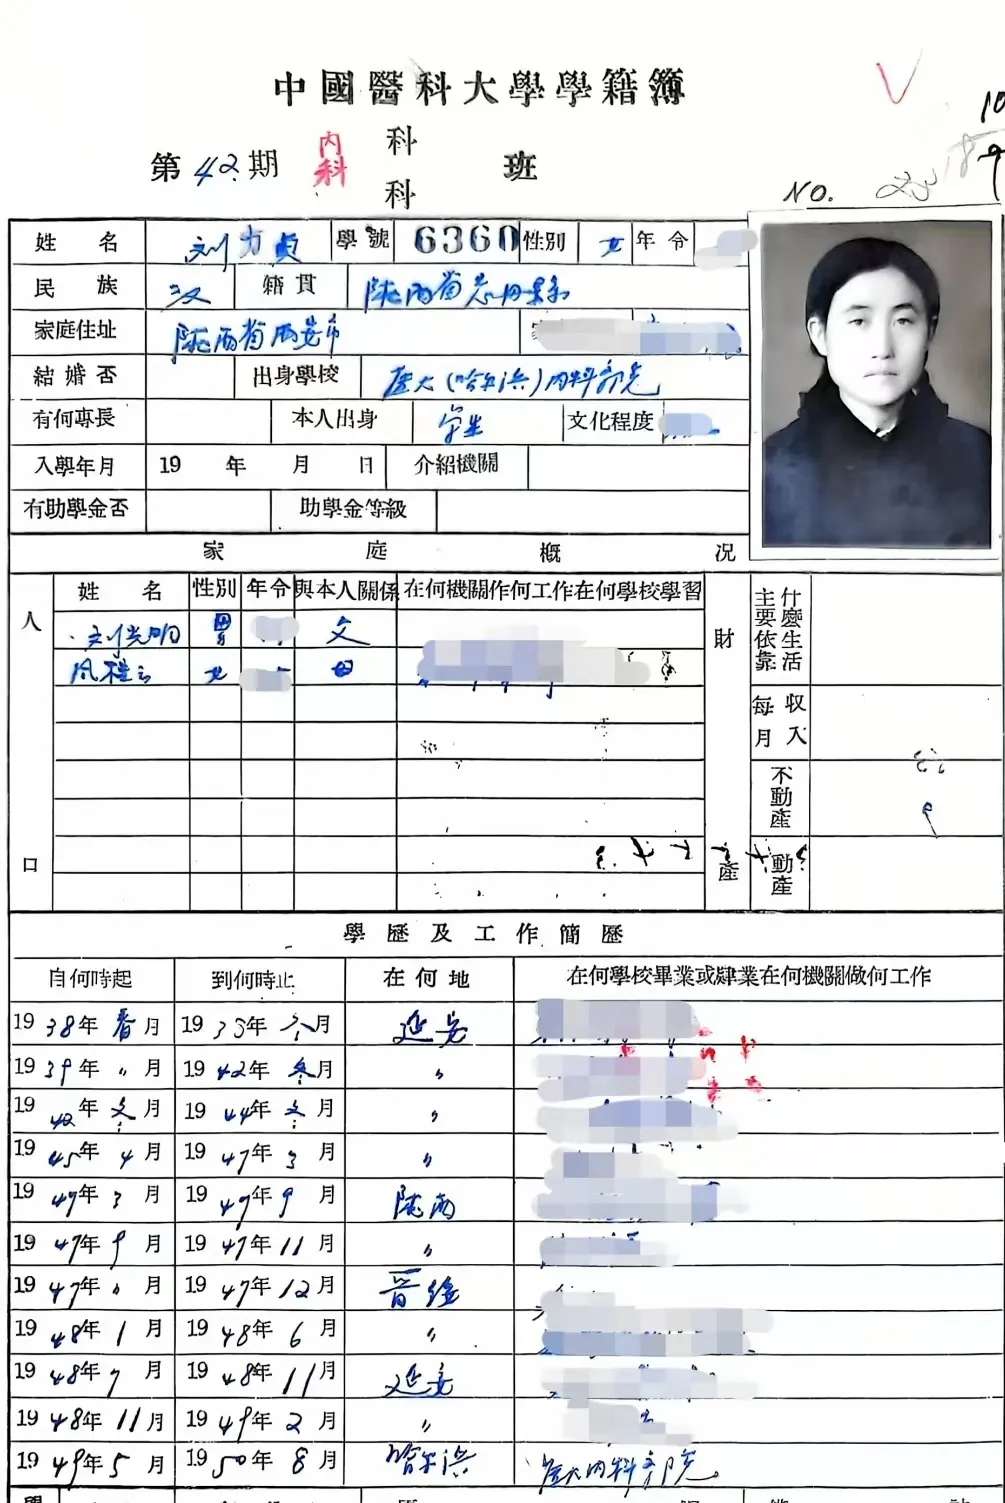 中國醫科大學學籍簿
第42期 内科 科 科 班
NO.
姓名 刘力贞 學號 6360 性別 女 年令
民族 汉 籍貫 陕西省志丹县
家庭住址 陕西省西安市
結婚否 出身學校 医大(哈尔滨)内科
有何專長 本人出身 学生 文化程度
入學年月 19 年 月 日 介紹機關
有助學金否 助學金等級
家庭概况
人口
姓名 性別 年令 與本人關係 在何機關作何工作在何學校學習
刘 明 男 父
风桂 女 母
財產
什麼生活主要依靠
每月收入
不動產
動產
學歷及工作簡歷
自何時起 到何時止 在何地 在何學校畢業或肄業在何機關做何工作
1938年春月 19 年 月 延安
1939年〃月 1942年冬月 〃
1942年冬月 1944年冬月 〃
1945年4月 1947年3月 〃
1947年3月 1947年9月 陕西
1947年9月 1947年11月 〃
1947年〃月 1947年12月 晋绥
1948年1月 1948年6月 〃
1948年7月 1948年11月 延安
1948年11月 1949年2月 〃
1949年5月 1950年8月 哈尔滨 医大内科